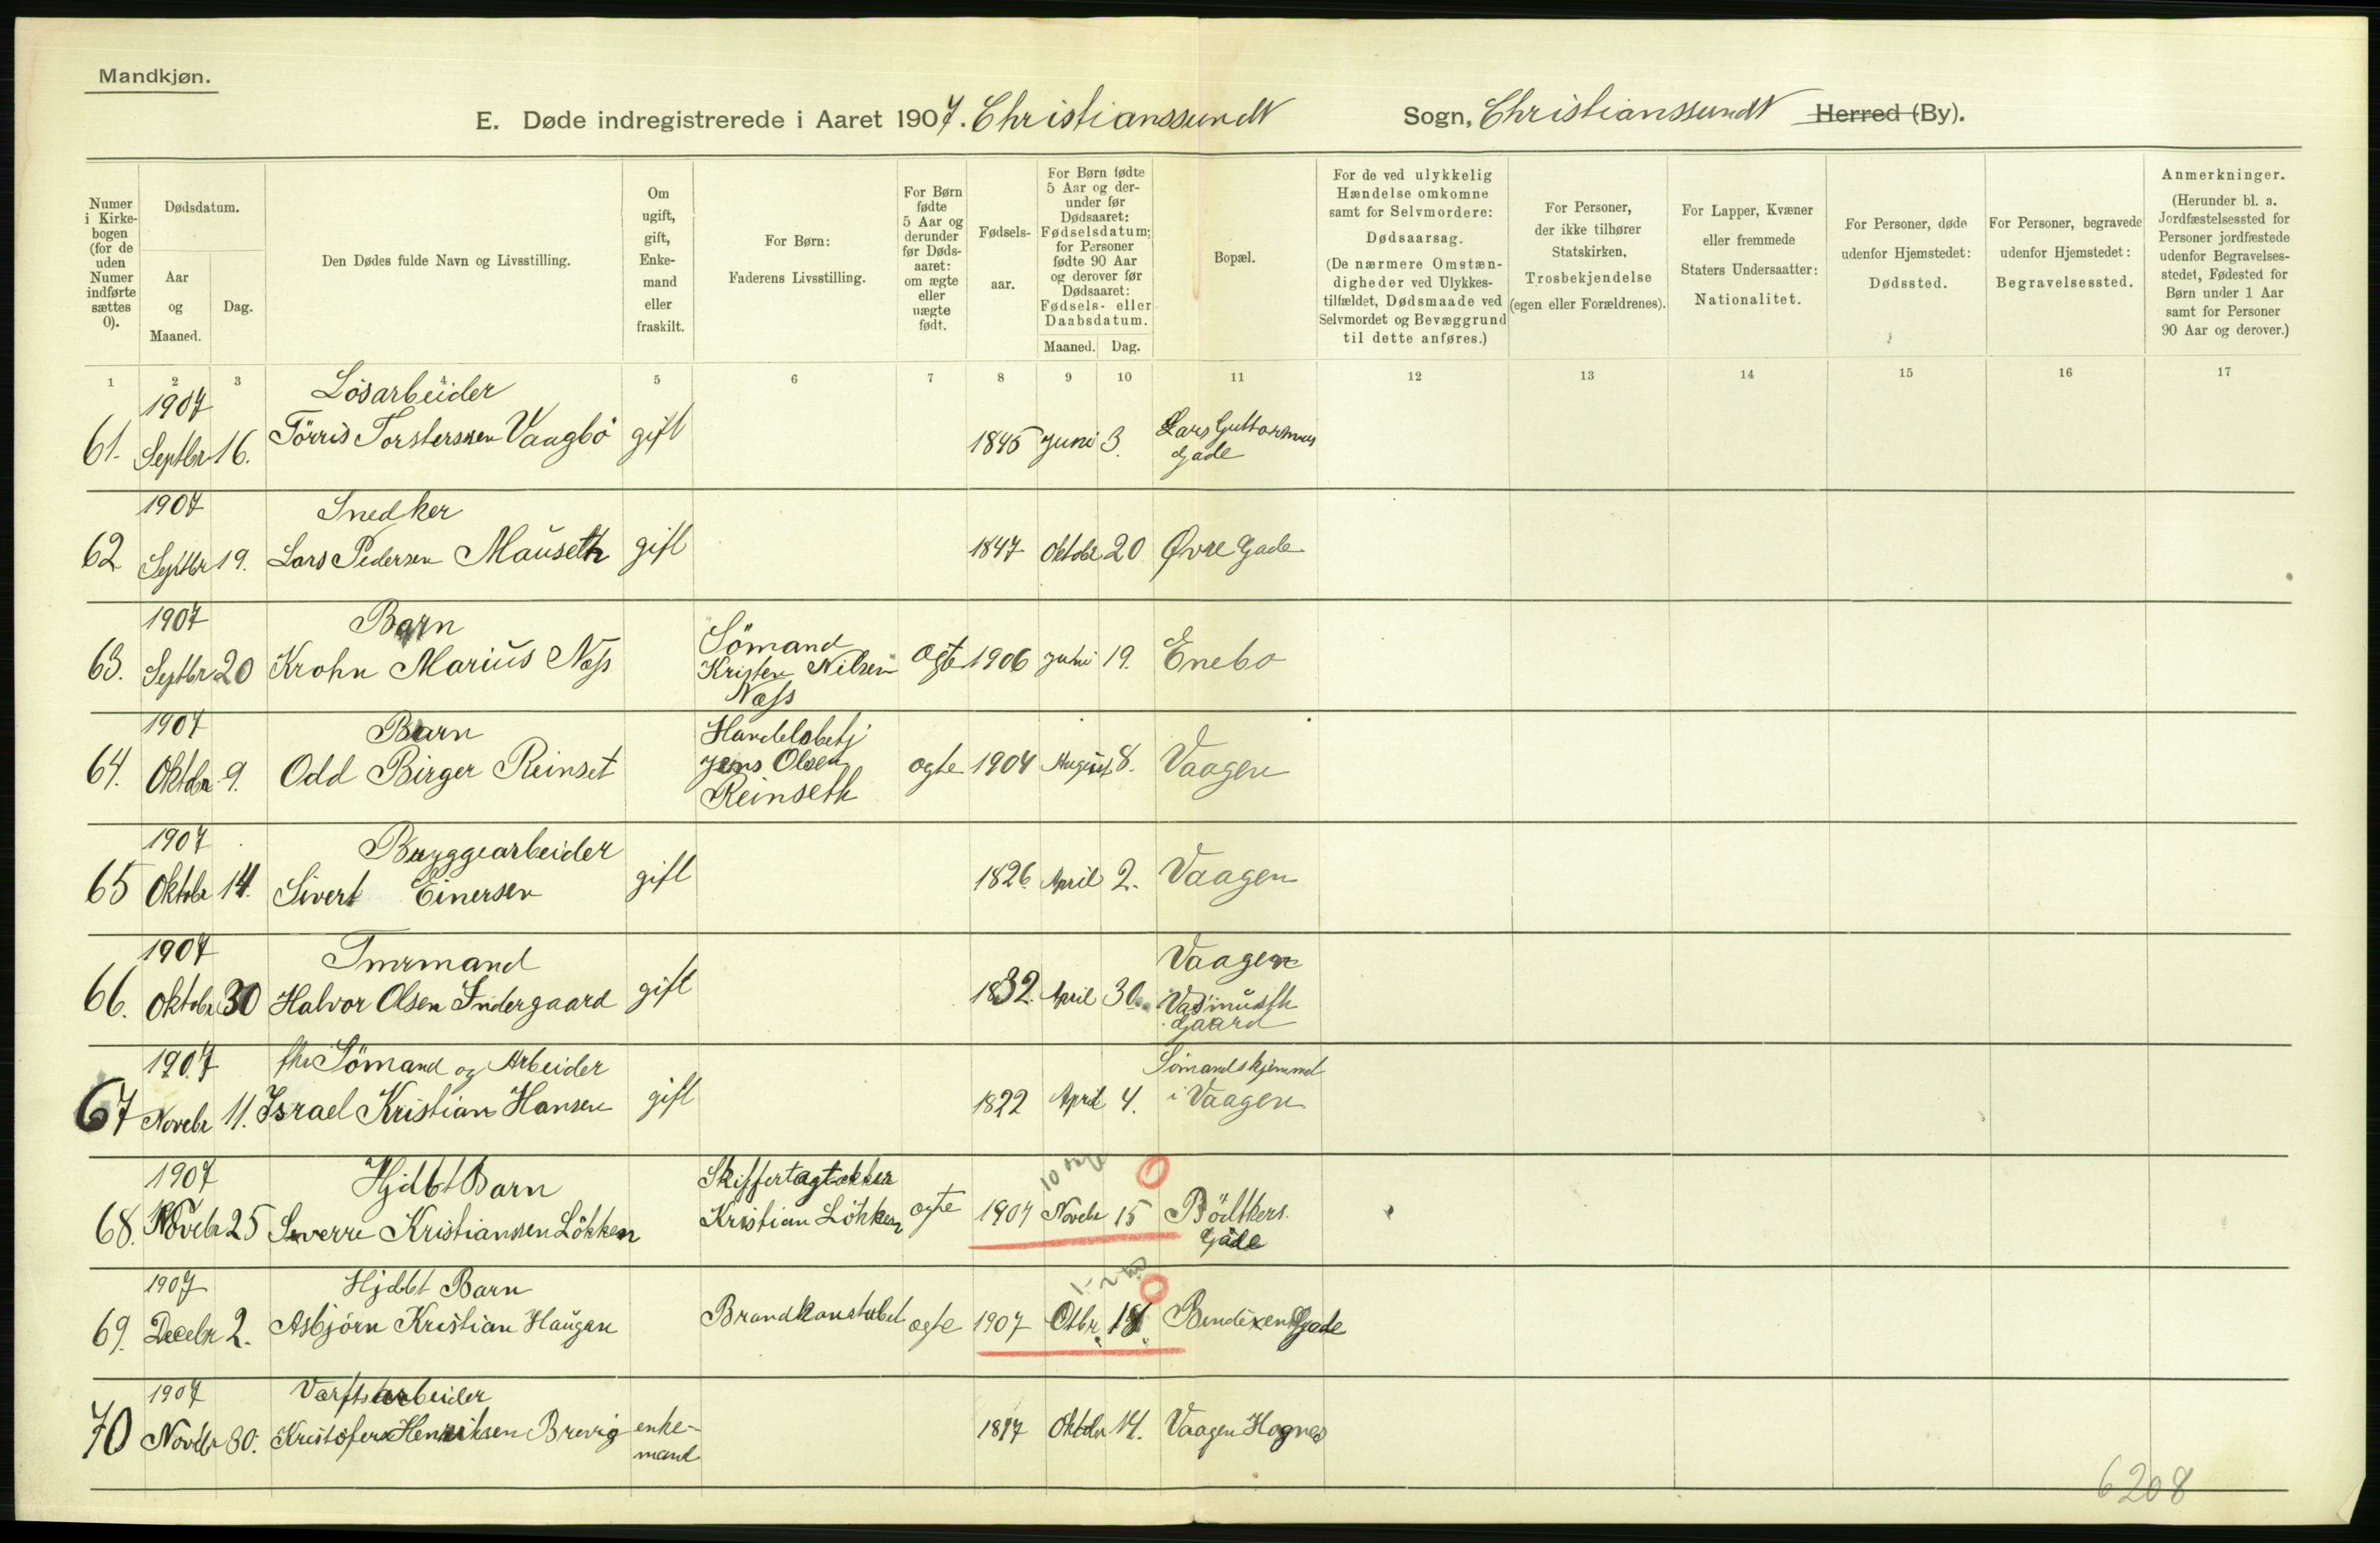 Mandkjøn.
E. Døde indregistrerede i Aaret 1907. Christianssundt Sogn, Christianssundt Herred (By).
Numer i Kirke-bogen (for de uden Numer indførte sættes 0).
Dødsdatum.
Aar og Maaned.
Dag.
Den Dødes fulde Navn og Livsstilling.
Om ugift, gift, Enke-mand eller fraskilt.
For Børn:
Faderens Livsstilling.
For Børn fødte 5 Aar og derunder før Døds-aaret: om ægte eller uægte født.
Fødsels-aar.
For Børn fødte 5 Aar og der-under før Dødsaaret: Fødselsdatum; for Personer fødte 90 Aar og derover før Dødsaaret: Fødsels- eller Daabsdatum.
Maaned. Dag.
Bopæl.
For de ved ulykkelig Hændelse omkomne samt for Selvmordere: Dødsaarsag. (De nærmere Omstæn-digheder ved Ulykkes-tilfældet, Dødsmaade ved Selvmordet og Bevæggrund til dette anføres.)
For Personer, der ikke tilhører Statskirken, Trosbekjendelse (egen eller Forældrenes).
For Lapper, Kvæner eller fremmede Staters Undersaatter: Nationalitet.
For Personer, døde udenfor Hjemstedet: Dødssted.
For Personer, begravede udenfor Hjemstedet: Begravelsessted.
Anmerkninger. (Herunder bl. a. Jordfæstelsessted for Personer jordfæstede udenfor Begravelses-stedet, Fødested for Børn under 1 Aar samt for Personer 90 Aar og derover.)
1 2 3 5 6 7 8 9 10 11 12 13 14 15 16 17
1907 Løsarbeider
61. Septbr 16. Törris Torstenssen Vaagbö gift 1845 Juni 3. Lars Guttormus Gade
1907 Snedker
62 Septbr 19. Lars Pedersen Mauseth gift 1847 Oktobr 20 Øvre Gade
1907 Barn
63. Septbr 20 Krohn Marius Næss Sömand Kristen Nilsen Næss ægte 1906 Juni 19. Enebo
1907 Barn
64. Oktobr 9. Odd Birger Reinset Handelsbetj Jens Olsen Reinseth ægte 1904 August 8. Vaagen
1907 Bryggearbeider
65 Oktobr 14. Sivert Einersen gift 1826 April 2. Vaagen
1907 Tmrmand
66. Oktobr 30 Halvor Olsen Indergaard gift 1832. April 30. Vaagen Gaard
1907 fhv Sömand og Arbeider
67 Novebr 11. Israel Kristian Hansen gift 1822 April 4. Sömandshjemmet i Vaagen
1907 Hjdbt Barn
68. Novebr 25 Sverre Kristianssen Lökken Skiffertagtækker Kristian Lökken ægte 1907 Novebr 15 Bödtkers Gade
1907 Hjdbt Barn
69. Decebr 2. Asbjörn Kristian Haugen Brandkonstabel ægte 1907 Otbr 18. Bendixen Gade
1907 Værftsarbeider
70 Novebr 30. Kristofer Henriksen Brevig enke-mand 1817 Oktobr 14. Vaagen Hognes
6208